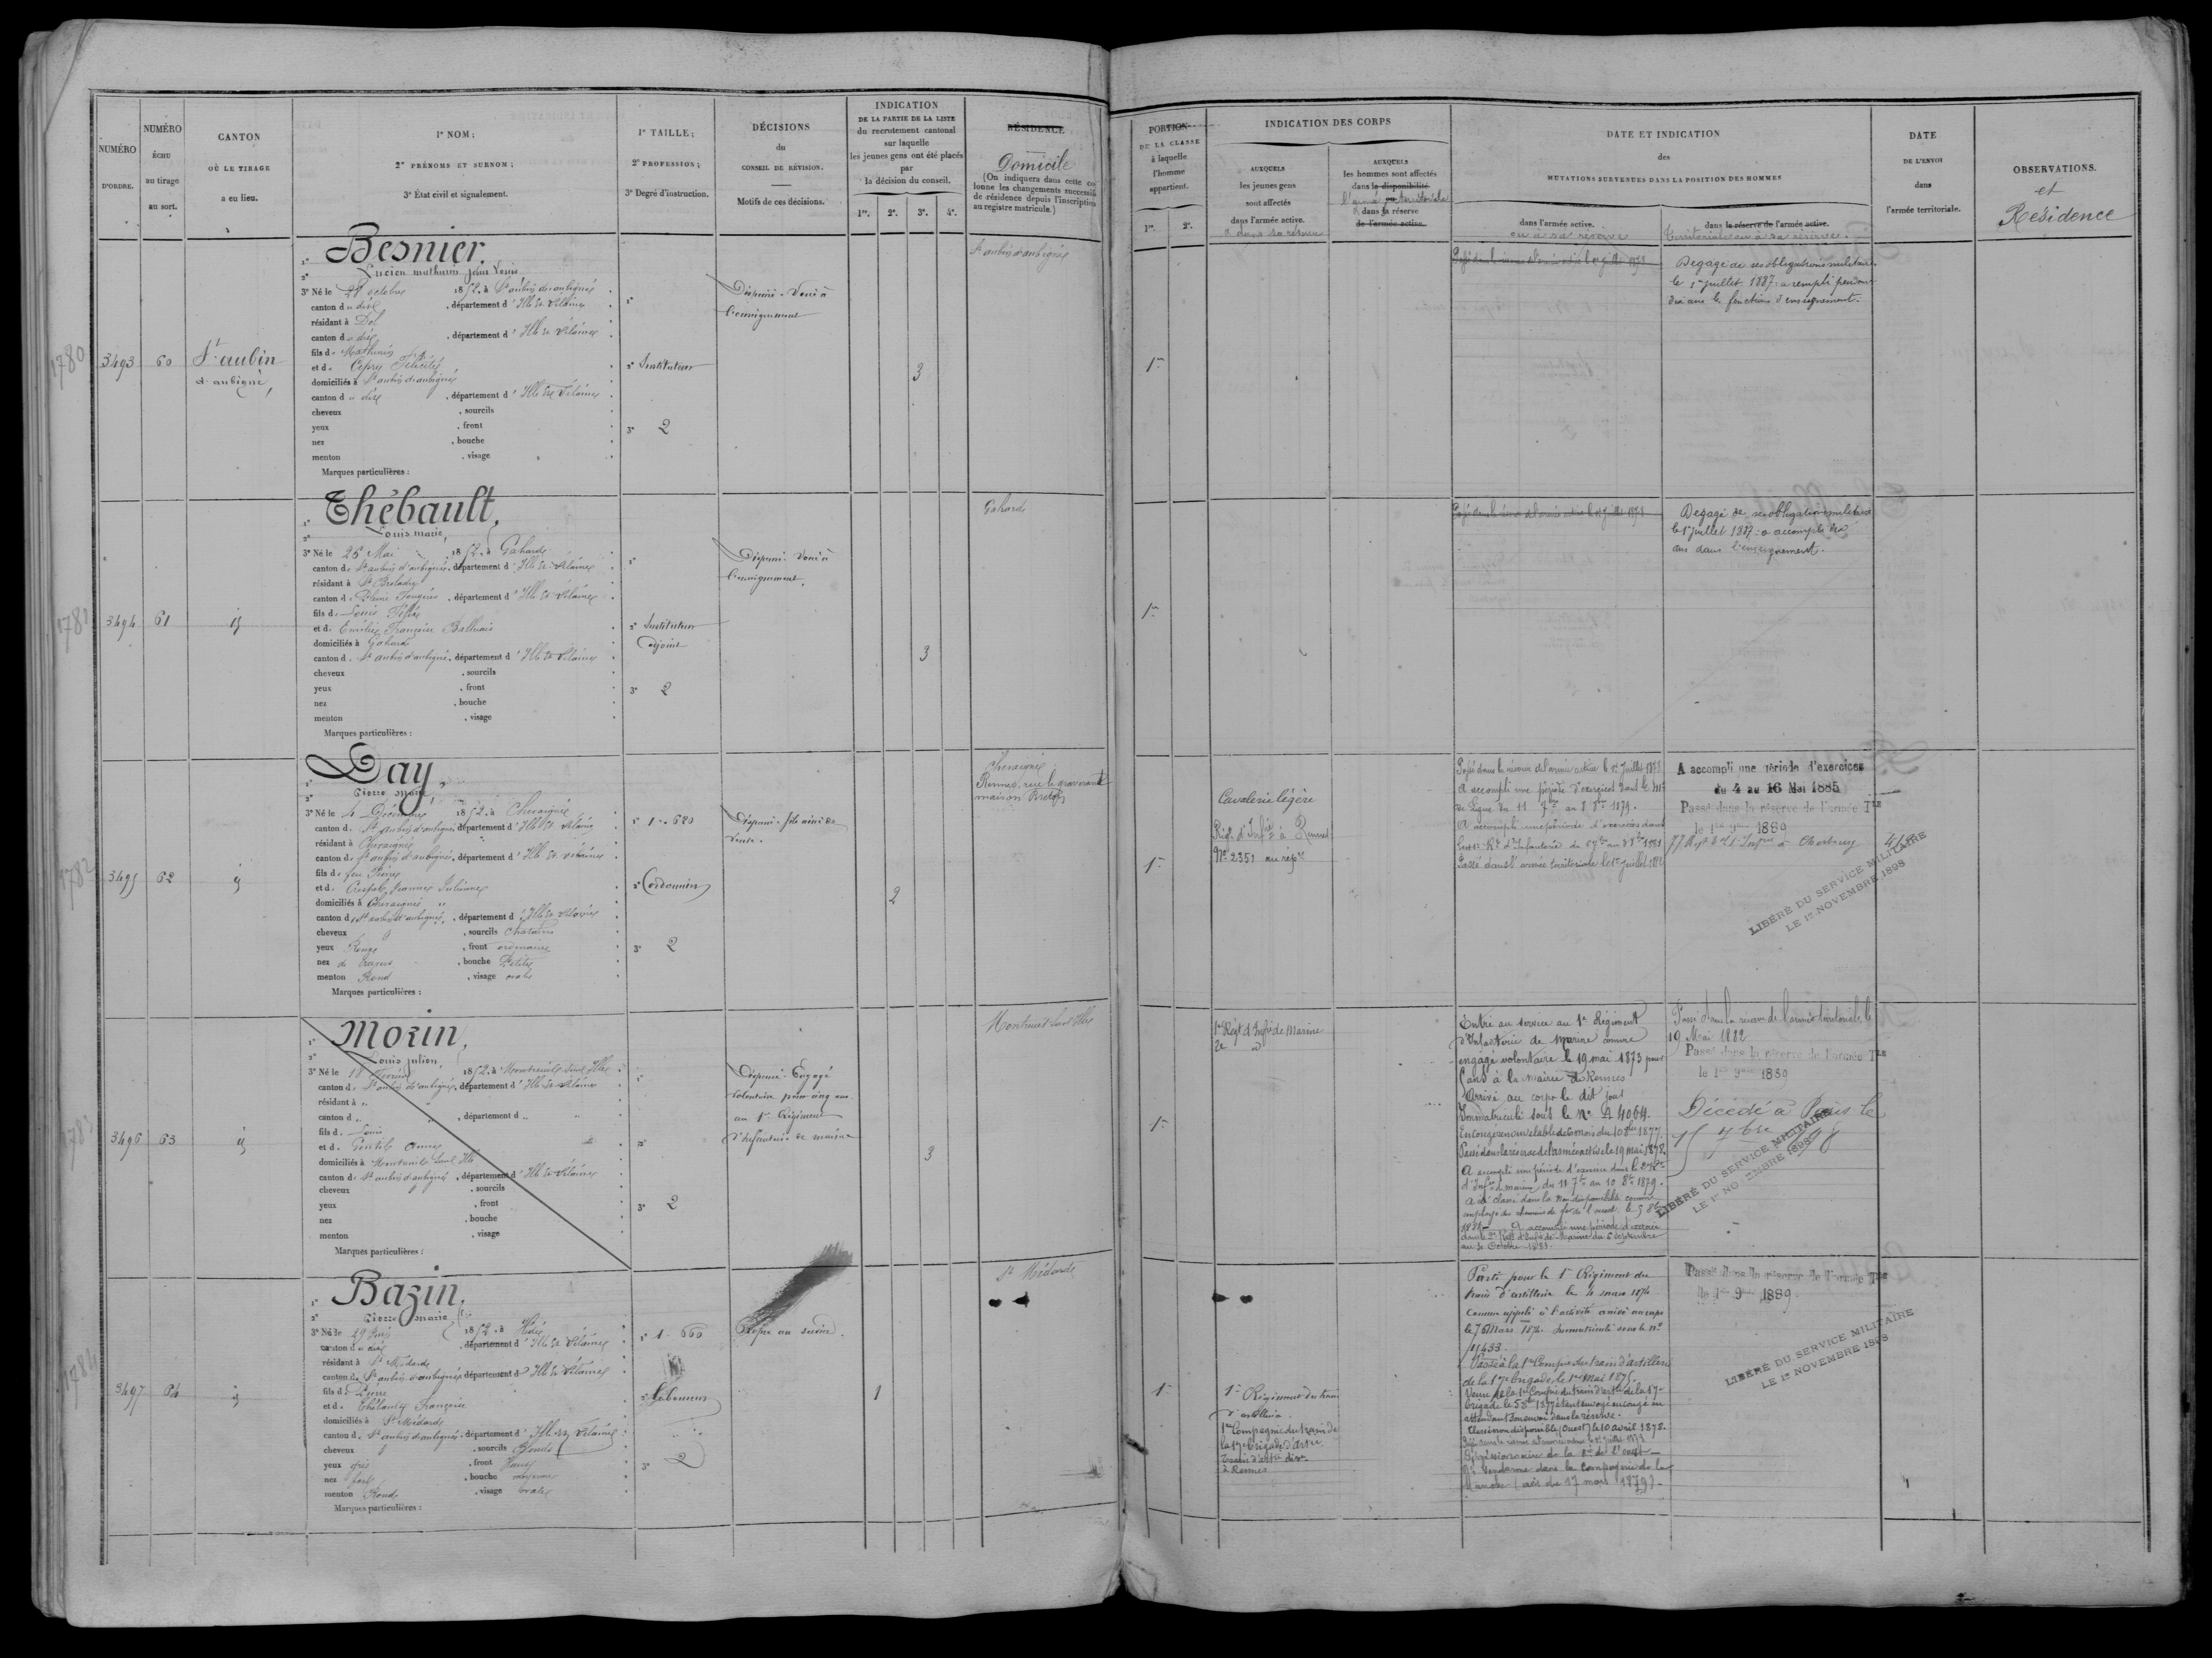 NUMÉRO
D'ORDRE.
NUMÉRO
ÉCHU
au tirage
au sort.
CANTON
OÙ LE TIRAGE
a eu lieu.
1° NOM;
2° PRÉNOMS ET SURNOM;
3° État civil et signalement.
1° TAILLE;
2° PROFESSION;
3° Degré d'instruction.
DÉCISIONS
du
CONSEIL DE RÉVISION.
Motifs de ces décisions.
INDICATION
DE LA PARTIE DE LA LISTE
du recrutement cantonal
sur laquelle
les jeunes gens ont été placés
par
la décision du conseil.
1re. 2e. 3e. 4e.
RÉSIDENCE
Domicile
(On indiquera dans cette co-
lonne les changements successifs
de résidence depuis l'inscription
au registre matricule.)
PORTION
DE LA CLASSE
à laquelle
l'homme
appartient.
1re. 2e.
INDICATION DES CORPS
AUXQUELS
les jeunes gens
sont affectés
dans l'armée active.
& dans sa réserve
AUXQUELS
les hommes sont affectés
dans la disponibilité
ou
l'armée territoriale
& dans sa réserve
de l'armée active.
DATE ET INDICATION
des
MUTATIONS SURVENUES DANS LA POSITION DES HOMMES
dans l'armée active.
ou à sa réserve
dans la réserve de l'armée active.
territoriale ou à sa réserve.
DATE
DE L'ENVOI
dans
l'armée territoriale.
OBSERVATIONS.
et
Résidence
1780
3493 60 St aubin
d'aubigné,
1° Besnier,
2° Lucien mathurin Jean Louis
3° Né le 28 octobre 1852, à St aubin d'aubigné
canton d u dit, département d'Ille et Vilaine
résidant à Dol
canton d u dit, département d'Ille et Vilaine
fils de Mathurin
et de Félicité
domiciliés à St aubin d'aubigné
canton d u dit, département d'Ille et Vilaine
cheveux , sourcils
yeux , front
nez , bouche
menton , visage
Marques particulières :
1°
2° Instituteur
3° 2
Dispensé - Voué à
l'enseignement
3
St aubin d'aubigné
1re
Passé dans la réserve de l'armée active le 1er Juillet 1878
Dégagé de ses obligations militaires
le 1er juillet 1887: a rempli pendant
dix ans les fonctions d'enseignement.
1781
3494 61 id
1° Thébault,
2° Louis marie,
3° Né le 26 Mai 1852, à Gahard
canton de St aubin d'aubigné, département d'Ille et Vilaine
résidant à St Broladre
canton de Pleine Fougères, département d'Ille et Vilaine
fils de Louis
et de Emilie Françoise
domiciliés à Gahard
canton de St aubin d'aubigné, département d'Ille et Vilaine
cheveux , sourcils
yeux , front
nez , bouche
menton , visage
Marques particulières :
1°
2° Instituteur
adjoint
3° 2
Dispensé - Voué à
l'enseignement.
3
Gahard
1re
Passé dans la réserve de l'armée active le 1er Juillet 1878
Dégagé de ses obligations militaires
le 1er juillet 1887: a accompli dix
ans dans l'enseignement.
1782
3495 62 id
1° Day,
2° Pierre Marie,
3° Né le 4 Décembre 1852, à Chevaigné
canton de St aubin d'aubigné, département d'Ille et Vilaine
résidant à Chevaigné
canton de St aubin d'aubigné, département d'Ille et Vilaine
fils de feu Pierre
et de Jeanne Julienne
domiciliés à Chevaigné
canton de St aubin d'aubigné, département d'Ille et Vilaine
cheveux , sourcils Chatains
yeux Roux , front ordinaire
nez , bouche Petite
menton Rond , visage ovale
Marques particulières :
1° 1m. 680
2° Cordonnier
3° 2
Dispensé - fils aîné de
veuve.
2
Chevaigné
Rennes, rue
maison
1re
Cavalerie légère
Régt d'Infie à Rennes
N° 2351 au répre
Passé dans la réserve de l'armée active le 1er Juillet 1878
A accompli une période d'exercices dans le
de Ligne du 11 7bre au 8 8bre 1879.
A accompli une période d'exercices dans
d'Infanterie du
Passé dans l'armée territoriale le 1er Juillet
A accompli une période d'exercices
du 4 au 16 Mai 1885
Passé dans la réserve de l'armée Tle
le 1er 9bre 1889
à Cherbourg
LIBÉRÉ DU SERVICE MILITAIRE
LE 1er NOVEMBRE 1898
1783
3496 63 id
1° Morin,
2° Louis Julien,
3° Né le 18 1852, à Montreuil Sur Ille
canton de St aubin d'aubigné, département d'Ille et Vilaine
résidant à "
canton d " , département d "
fils de Louis
et de Gentil Anne
domiciliés à Montreuil Sur Ille
canton de St aubin d'aubigné, département d'Ille et Vilaine
cheveux , sourcils
yeux , front
nez , bouche
menton , visage
Marques particulières :
1°
2°
3° 2
Dispensé - Engagé
volontaire pour cinq ans
au 1er Régiment
d'Infanterie de marine
3
Montreuil Sur Ille
1re
1er Régt d'Infie de Marine
2e id
Entré au service au 1er Régiment
d'Infanterie de Marine comme
engagé volontaire le 19 mai 1873 pour
5 ans à la mairie de Rennes
Arrivé au corps le dit jour
Immatriculé sous le N° A 4064.
En congé renouvelable de 6 mois du 10 8bre 1877.
Passé dans la réserve de l'armée active le 19 mai 1878.
A accompli une période d'exercice dans le 2e Rt
d'Infie de marine du 11 7bre au 10 8bre 1879.
A été classé dans la Non disponibilité comme
employé des chemins de fer de l'ouest le 5 8bre
1881 - A accompli une période d'exercice
dans le 2e Régt d'Infie de Marine du 5 Septembre
au 2 Octobre 1881.
Passé dans la réserve de l'armée territoriale le
19 Mai 1882
Passé dans la réserve de l'armée Tle
le 1er 9bre 1889
Décédé à Paris le
15 7bre 98
LIBÉRÉ DU SERVICE MILITAIRE
LE 1er NOVEMBRE 1898
1784
3497 64 id
1° Bazin,
2° Pierre Marie
3° Né le 29 1852, à Hédé
canton d u dit, département d'Ille et Vilaine
résidant à St Médard
canton de St aubin d'aubigné, département d'Ille et Vilaine
fils de Pierre
et de Françoise
domiciliés à St Médard
canton de St aubin d'aubigné, département d'Ille et Vilaine
cheveux , sourcils Blonds
yeux gris , front Haut
nez fort , bouche moyenne
menton Rond , visage ovale
Marques particulières :
1° 1. 660
2° Laboureur
3° 2
Propre au service.
1
St Médard
1re
1er Régiment du train
d'artillerie.
1re Compagnie du train de
la 17e brigade d'artie
Train d'artie
à Rennes
Parti pour le 1er Régiment du
train d'artillerie le 4 mars 1874
Comme appelé à l'activité arrivé au corps
le 7 Mars 1874. Immatriculé sous le n°
11433.
Passé à la 1re Compie du train d'artillerie
de la 17e brigade le 1er Mai 1875.
Venu de la 1re Compie du train d'artie de la 17e
brigade le 5 8bre 1877 étant envoyé en congé en
attendant son envoi dans la réserve.
Classé non disponible (Ouest) le 10 avril 1878.
Passé dans la réserve de l'armée active le 1er Juillet 1878
de la Cie de l'ouest -
Né Gendarme dans la Compagnie de la
Manche (avis du 17 mars 1879).
Passé dans la réserve de l'armée Tle
le 1er 9bre 1889.
LIBÉRÉ DU SERVICE MILITAIRE
LE 1er NOVEMBRE 1898